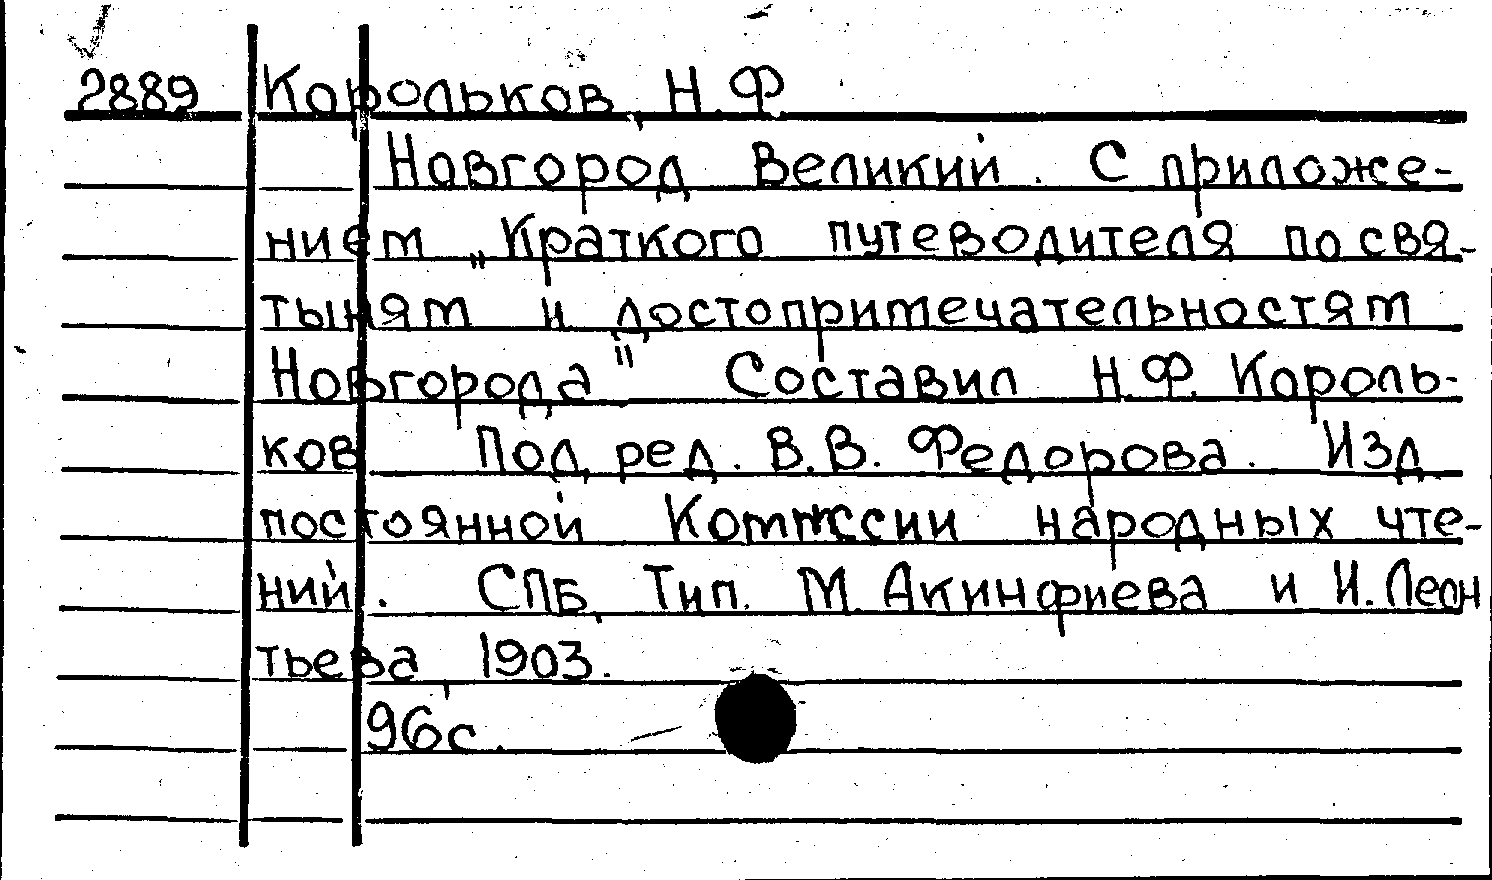 2889 Корольков, Н.Ф
Новгород Великий. С приложе-
нием „Краткого путеводителя по свя-
тыням и достопримечательностям
Новгорода" Составил Н.Ф. Король-
ков Под ред. В.В. Федорова. Изд
постоянной Комиссии народных чте-
ний. СПБ, Тип. М. Акинфиева и И. Леон
тьева, 1903.
96с.